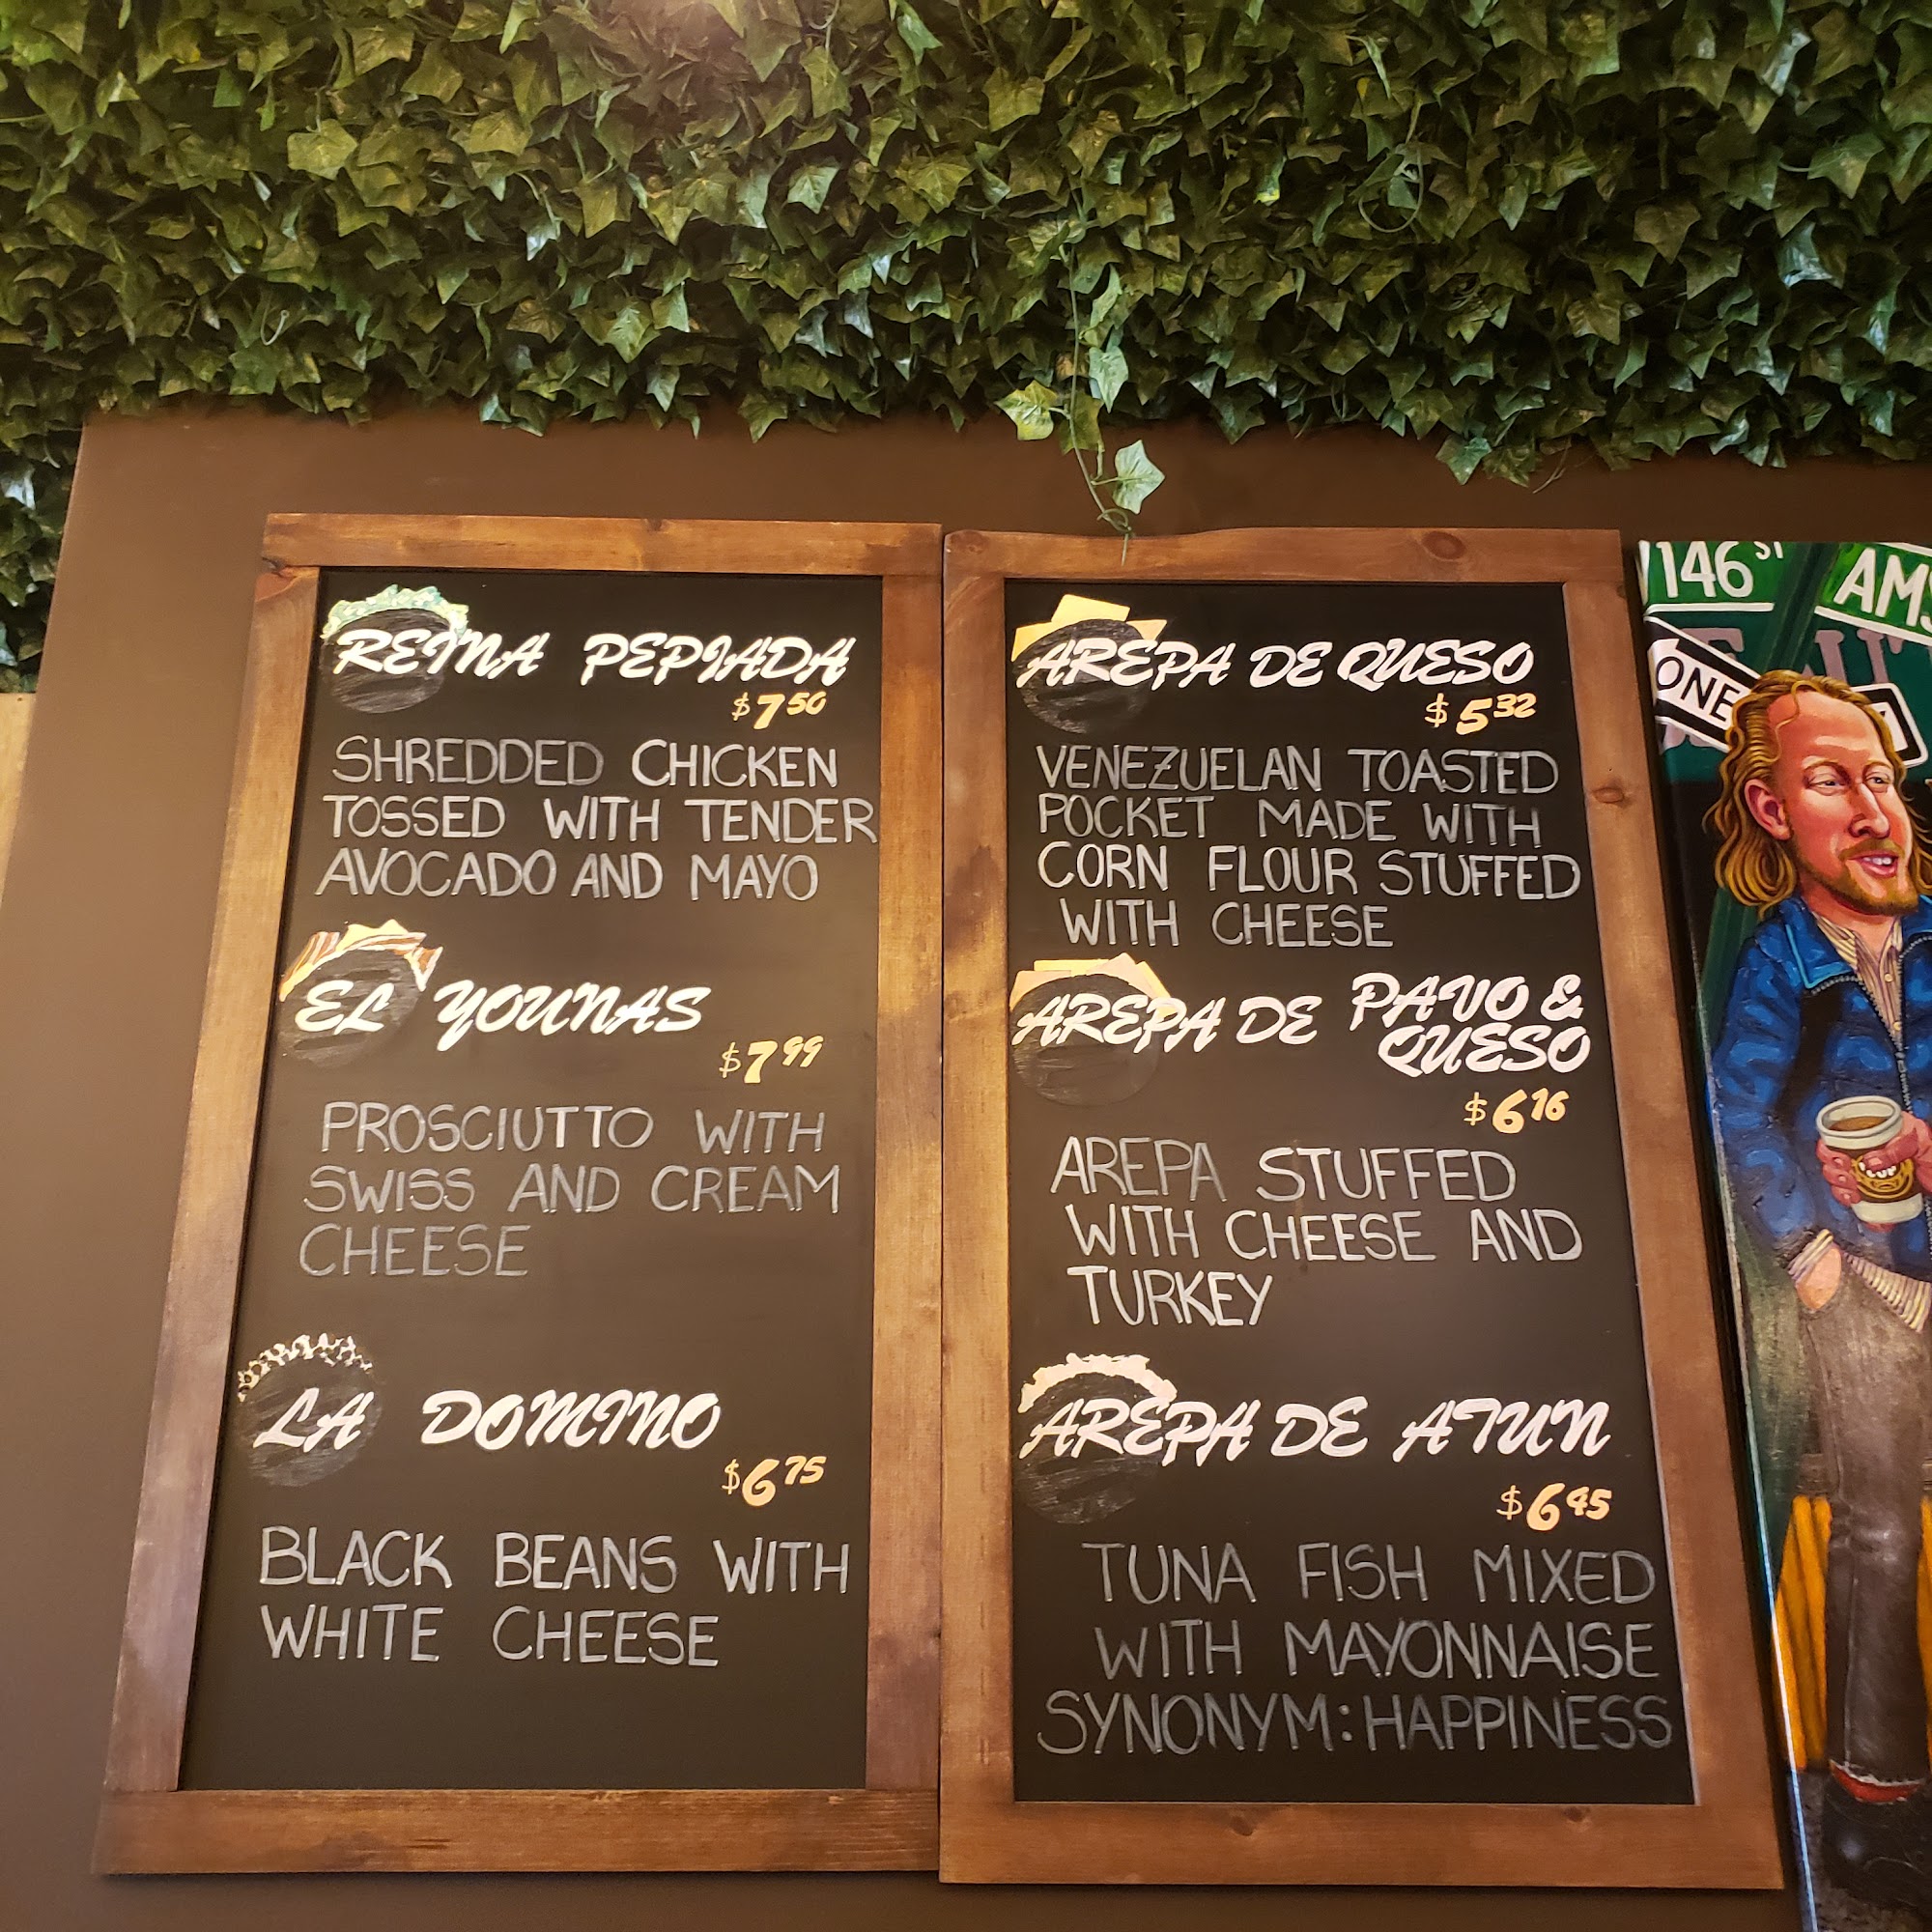 REINA PEPIADA
$7 50
SHREDDED CHICKEN
TOSSED WITH TENDER
AVOCADO AND MAYO
EL YOUNAS
$7 99
PROSCIUTTO WITH
SWISS AND CREAM
CHEESE
LA DOMINO
$6 75
BLACK BEANS WITH
WHITE CHEESE
AREPA DE QUESO
$5 32
VENEZUELAN TOASTED
POCKET MADE WITH
CORN FLOUR STUFFED
WITH CHEESE
AREPA DE PAVO &
QUESO
$6 16
AREPA STUFFED
WITH CHEESE AND
TURKEY
AREPA DE ATUN
$6 45
TUNA FISH MIXED
WITH MAYONNAISE
SYNONYM: HAPPINESS
146 ST
AMS
ONE